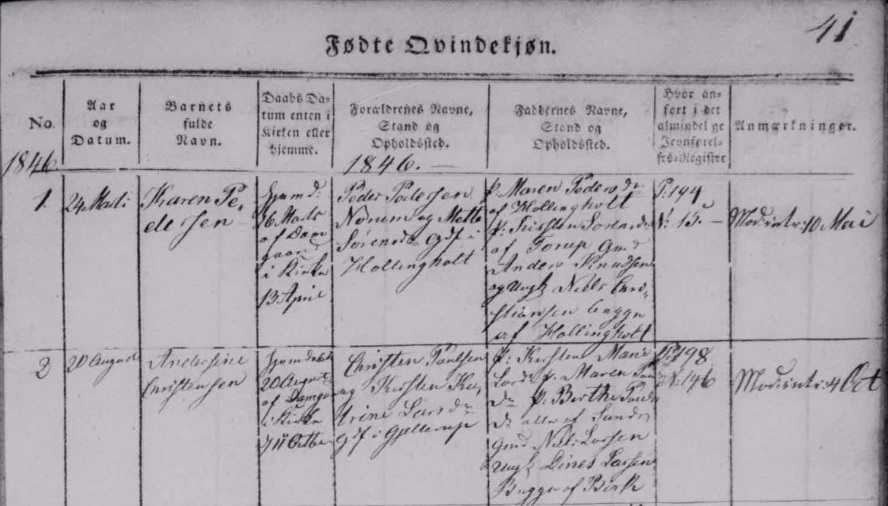 41
Fødte Qvindekjøn.
No.
Aar
og
Datum.
Barnets
fulde
Navn.
Daabs Da-
tum enten i
Kirken eller
hjemme.
Forældrenes Navne,
Stand og
Opholdssted.
Faddernes Navne,
Stand og
Opholdssted.
Hvor an-
ført i det
almindelige
Jevnførel-
ses-Register
Anmærkninger.
1846
1846.
1
24 Marts
Karen Pe-
dersen
26 Marts
af Dam
gaard
i Kirke
13 April
Peder Pedersen
Nørum og Mette
Sørensdr Gdf i
Hollingholt
P: Maren Pedersdr
af Hollingholt
P: Kirsten Sørensdr
af Torup Gmd
Anders Knudsen
og Ungk Niels Chri-
stiansen begge
af Hollingholt
P: 144
N: 15
Mod: intr: 10 Mai
2
20 August
Andersine
Christensen
20 August
af Damga
i Kirke
11 Octbr
Christen Poulsen
og Kirsten Ka-
trine Larsdr
Gdf i Gjellerup
P: Kirsten Marie
Larsdr P. Maren
Dr P. Birthe
Dr alle af Sunds
Gmd Niels Larsen
Ungk Dines Larsen
Begge af Birk
P: 198
N: 146
Mod: intr: 4 Oct